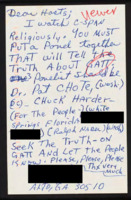 Dear Hosts,
Viewer
I watch C-SPAN
Religiously. You must
Put a Panel together
That will Tell the
Truth about GATT.
The Panelist should be
Dr. Pat CHOTE,
Dr. Chuck Harder
(For The People) (White
Springs Florida)
(Ralph Nader)
Seek the Truth - on
GATT and Let the People
Know. Please, Please, Please
Thank You
very much
GA 30510